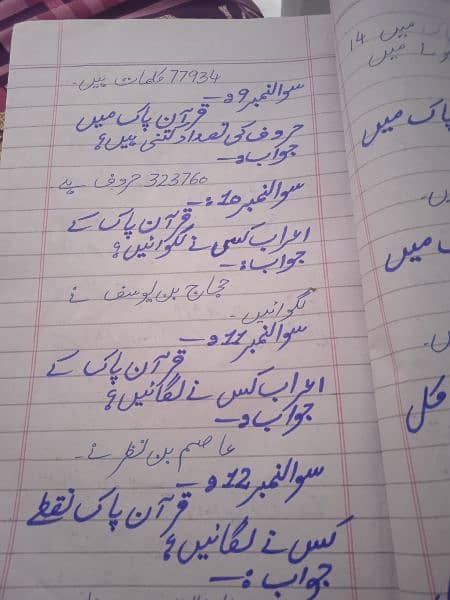 77934 کلمات ہیں۔
سوال نمبر 9 :۔
قرآن پاک میں
حروف کی تعداد کتنی ہیں؟
جواب :۔
323760 حروف ہے
سوال نمبر 10 :۔
قرآن پاک کے
اعراب کسی نے لگوائیں؟
جواب :۔
حجاج بن یوسف نے
لگوائیں۔
سوال نمبر 11 :۔
قرآن پاک کے
اعراب کس نے لگائیں؟
جواب :۔
عاصم بن نظر نے۔
سوال نمبر 12 :۔
قرآن پاک نقطے
کس نے لگائیں؟
جواب :۔
میں 14
میں
پاک میں
میں